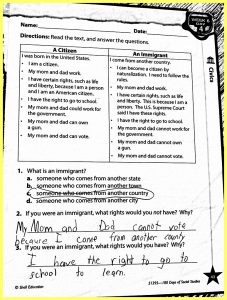 WEEK 6
DAY
Name:
Date:
Directions: Read the text, and answer the questions.
A Citizen
I was born in the United States.
• I am a citizen.
• My mom and dad work.
• I have certain rights, such as life and liberty, because I am a person and I am an American citizen.
• I have the right to go to school.
• My mom and dad could work for the government.
• My mom and dad can own a gun.
• My mom and dad can vote.
An Immigrant
I come from another country.
• I can become a citizen by naturalization. I need to follow the rules.
• My mom and dad work.
• I have certain rights, such as life and liberty. This is because I am a person. The U.S. Supreme Court said I have these rights.
• I have the right to go to school.
• My mom and dad cannot work for the government.
• My mom and dad cannot own a gun.
• My mom and dad cannot vote.
Civics
1. What is an immigrant?
a. someone who comes from another state
b. someone who comes from another town
c. someone who comes from another country
d. someone who comes from another city
2. If you were an immigrant, what rights would you not have? Why?
My Mom and Dad cannot vote
because I come from another county
3. If you were an immigrant, what rights would you have? Why?
I have the right to go to
school to learn.
© Shell Education
51395—180 Days of Social Studies